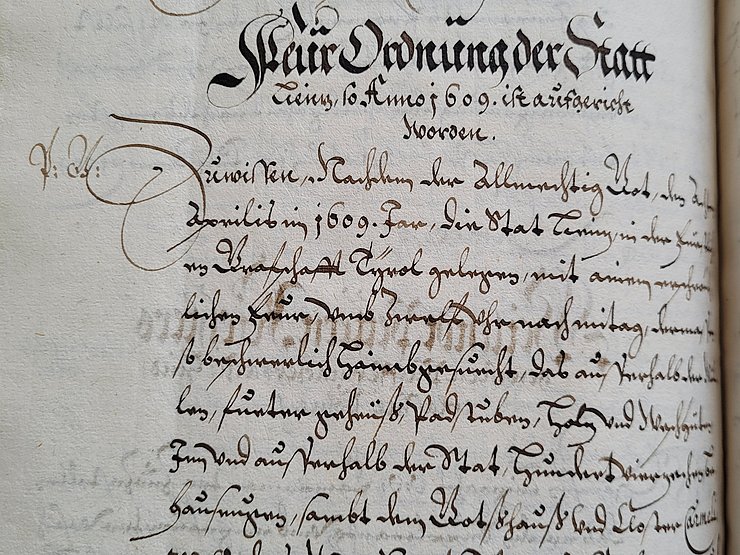 Feür Ordnung der Statt
Lienz, so Anno 1609. ist aufgericht
worden.
Zuwissen, Nachdem der Allmechtig Got, den
Aprilis im 1609. Jar, die Stat Lienz, in der
en Grafschafft Tyrol gelegen, mit ainem
lichen Feur, vmb Zwelff Vhr nach mitag,
so beschwerlich haimbgesuecht, das ausserhalb der
len, fueter geheüß, Padstuben, Holz vnd
Inn vnd ausserhalb der Stat, Hundert vierzechen
hausungen, sambt dem Gotshauß vnd Closter